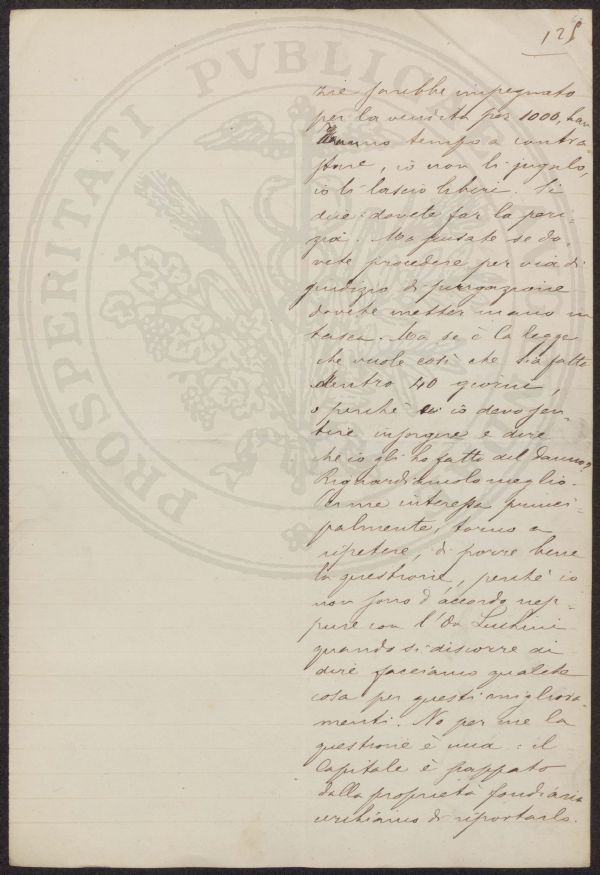 125
PROSPERITATI PVBLICAE
zie sarebbe impegnato
per la vendita per 1000, han
hanno tempo a contra-
stare, io non li jugulo,
io li lascio liberi. Si
dice: dovete far la peri-
zia. Ma pensate se do-
vete procedere per via di
giudizio di purgazione
dovete metter mano in
tasca. Ma se è la legge
che vuole così che sia fatto
dentro 40 giorni,
o perchè io devo sen-
tire insorgere e dire
che io gli ho fatto del danno?
Riguardiamolo meglio.
A me interessa princi-
palmente, torno a
ripetere, di porre bene
la questione, perchè io
non sono d'accordo nep-
pure con l'On Luchini
quando si discorre di
dire facciamo qualche
cosa per questi migliora-
menti. No per me la
questione è una: il
Capitale è scappato
dalla proprietà fondiaria
cerchiamo di riportarlo.